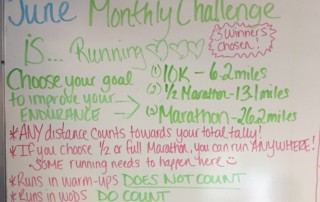 June Monthly Challenge
is... Running
Winners
Chosen!
Choose your goal
to improve your
ENDURANCE
(1) 10K - 6.2 miles
(2) 1/2 Marathon - 13.1 miles
(3) Marathon - 26.2 miles
*ANY distance counts towards your total tally!
*If you choose 1/2 or full Marathon, you can run ANYWHERE!
SOME running needs to happen here
*Runs in warm-ups DOES NOT COUNT
*Runs in WODS DO COUNT